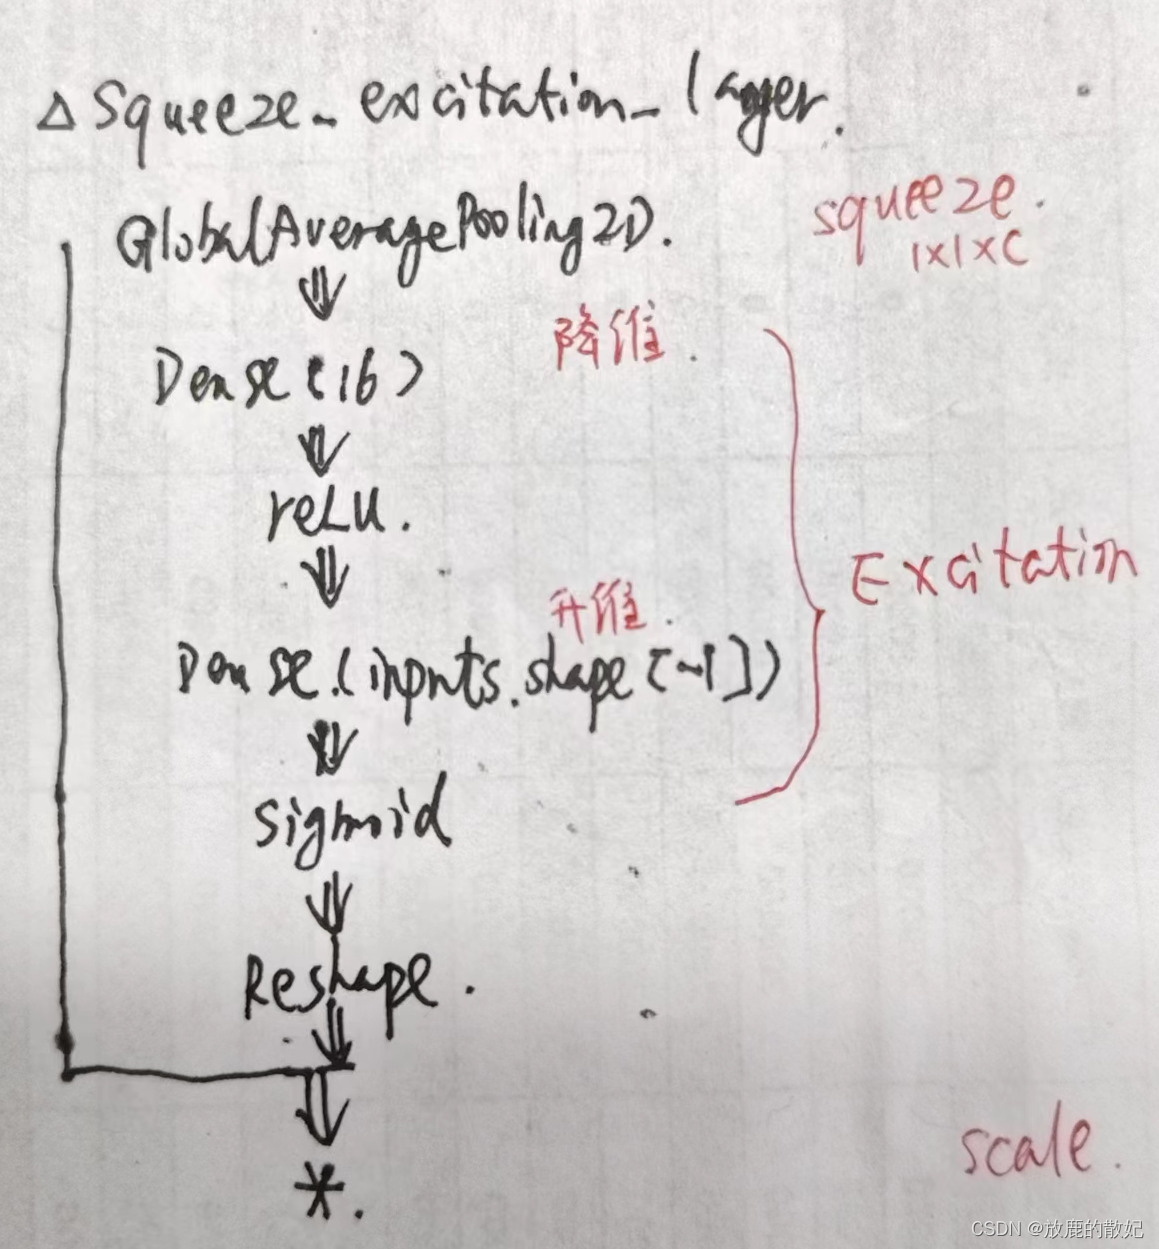 △ Squeeze_excitation_layer.
GlobalAveragePooling2D.
squeeze.
1x1xC
降维.
Dense(16)
reLu.
Excitation
升维.
Dense.(inputs.shape[-1])
sigmoid
Reshape.
scale.
*.
CSDN @放鹿的散妃